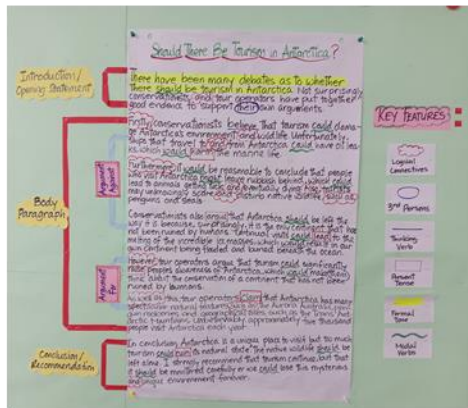 Should There Be Tourism in Antarctica?
Introduction/
Opening Statement
There have been many debates as to whether
there should be tourism in Antarctica. Not surprisingly
conservationists and tour operators have put together
good evidence to support their own arguments.
Body
Paragraph
Argument
Against
Firstly conservationists believe that tourism could dama-
ge Antarctica's environment and wildlife. Unfortunately,
ships that travel to and from Antarctica could have oil lea-
ks which would harm the marine life.
Furthermore it would be reasonable to conclude that people
who visit Antarctica might leave rubbish behind which could
lead to animals getting sick and eventually dying. Also tourists
may unknowingly disturb native wildlife such as
penguins and seals.
Conservationists also argue that Antarctica should be left the
way it is because, surprisingly, it is the only continent that has
not been ruined by humans. Continual visits could lead to the
melting of the incredible ice masses, which would result in our
own continent being flooded and buried beneath the ocean.
Argument
For
However tour operators argue that tourism could significantly
raise peoples awareness of Antarctica, which would make them
think about the conservation of a continent that has not been
ruined by humans.
As well as this tour operators claim that Antarctica has many
spectacular natural features such as the Aurora Australis, pen-
guin rookeries and geographical sites, such as the Trans Ant-
arctic mountains. Unfortunately, approximately five thousand
people visit Antarctica each year.
Conclusion/
Recommendation
In conclusion Antarctica is a unique place to visit but too much
tourism could ruin its natural state. The native wildlife should be
left alone. I strongly recommend that tourism continue, but that
it should be monitored carefully or we could lose this mysterious
and unique environment forever.
KEY FEATURES
Logical
Connectives
3rd Persons
Thinking
Verb
Present
Tense
Formal
Tone
Modal
Verbs